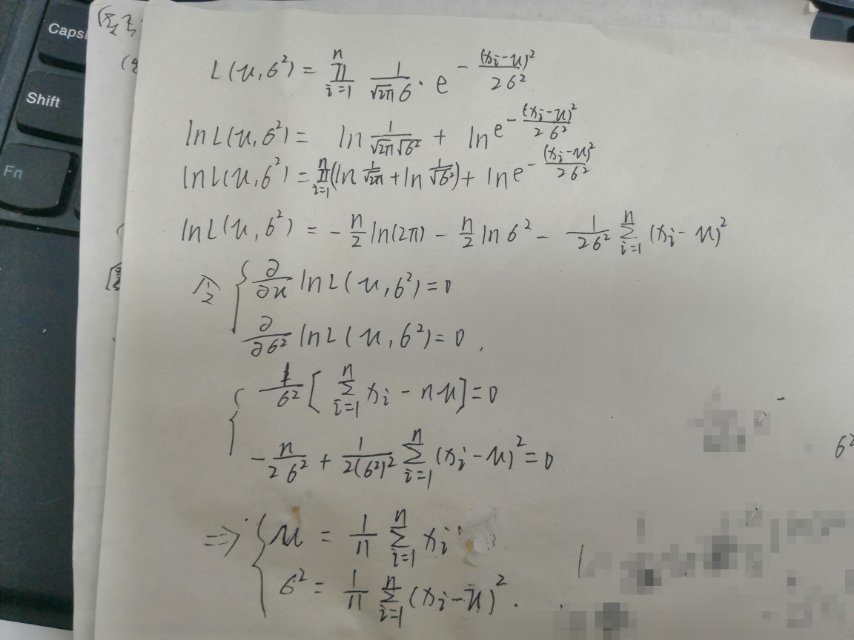 Caps
Shift
Fn
L(u,6²) = ∏_{i=1}^{n} 1/(√2π 6) · e^{-(xi-u)²/(26²)}
lnL(u,6²) = ln 1/(√2π √6²) + ln e^{-(xi-u)²/(26²)}
lnL(u,6²) = ∏_{i=1}^{n} (ln 1/√2π + ln 1/√6²) + ln e^{-(xi-u)²/(26²)}
lnL(u,6²) = -n/2 ln(2π) - n/2 ln6² - 1/(26²) ∑_{i=1}^{n} (xi-u)²
令 { ∂/∂u lnL(u,6²)=0
∂/∂6² lnL(u,6²)=0.
{ 1/6² [ ∑_{i=1}^{n} xi - nu ]=0
-n/(26²) + 1/(2(6²)²) ∑_{i=1}^{n} (xi-u)²=0
=> { u = 1/n ∑_{i=1}^{n} xi
6² = 1/n ∑_{i=1}^{n} (xi-u)².
6²
ln